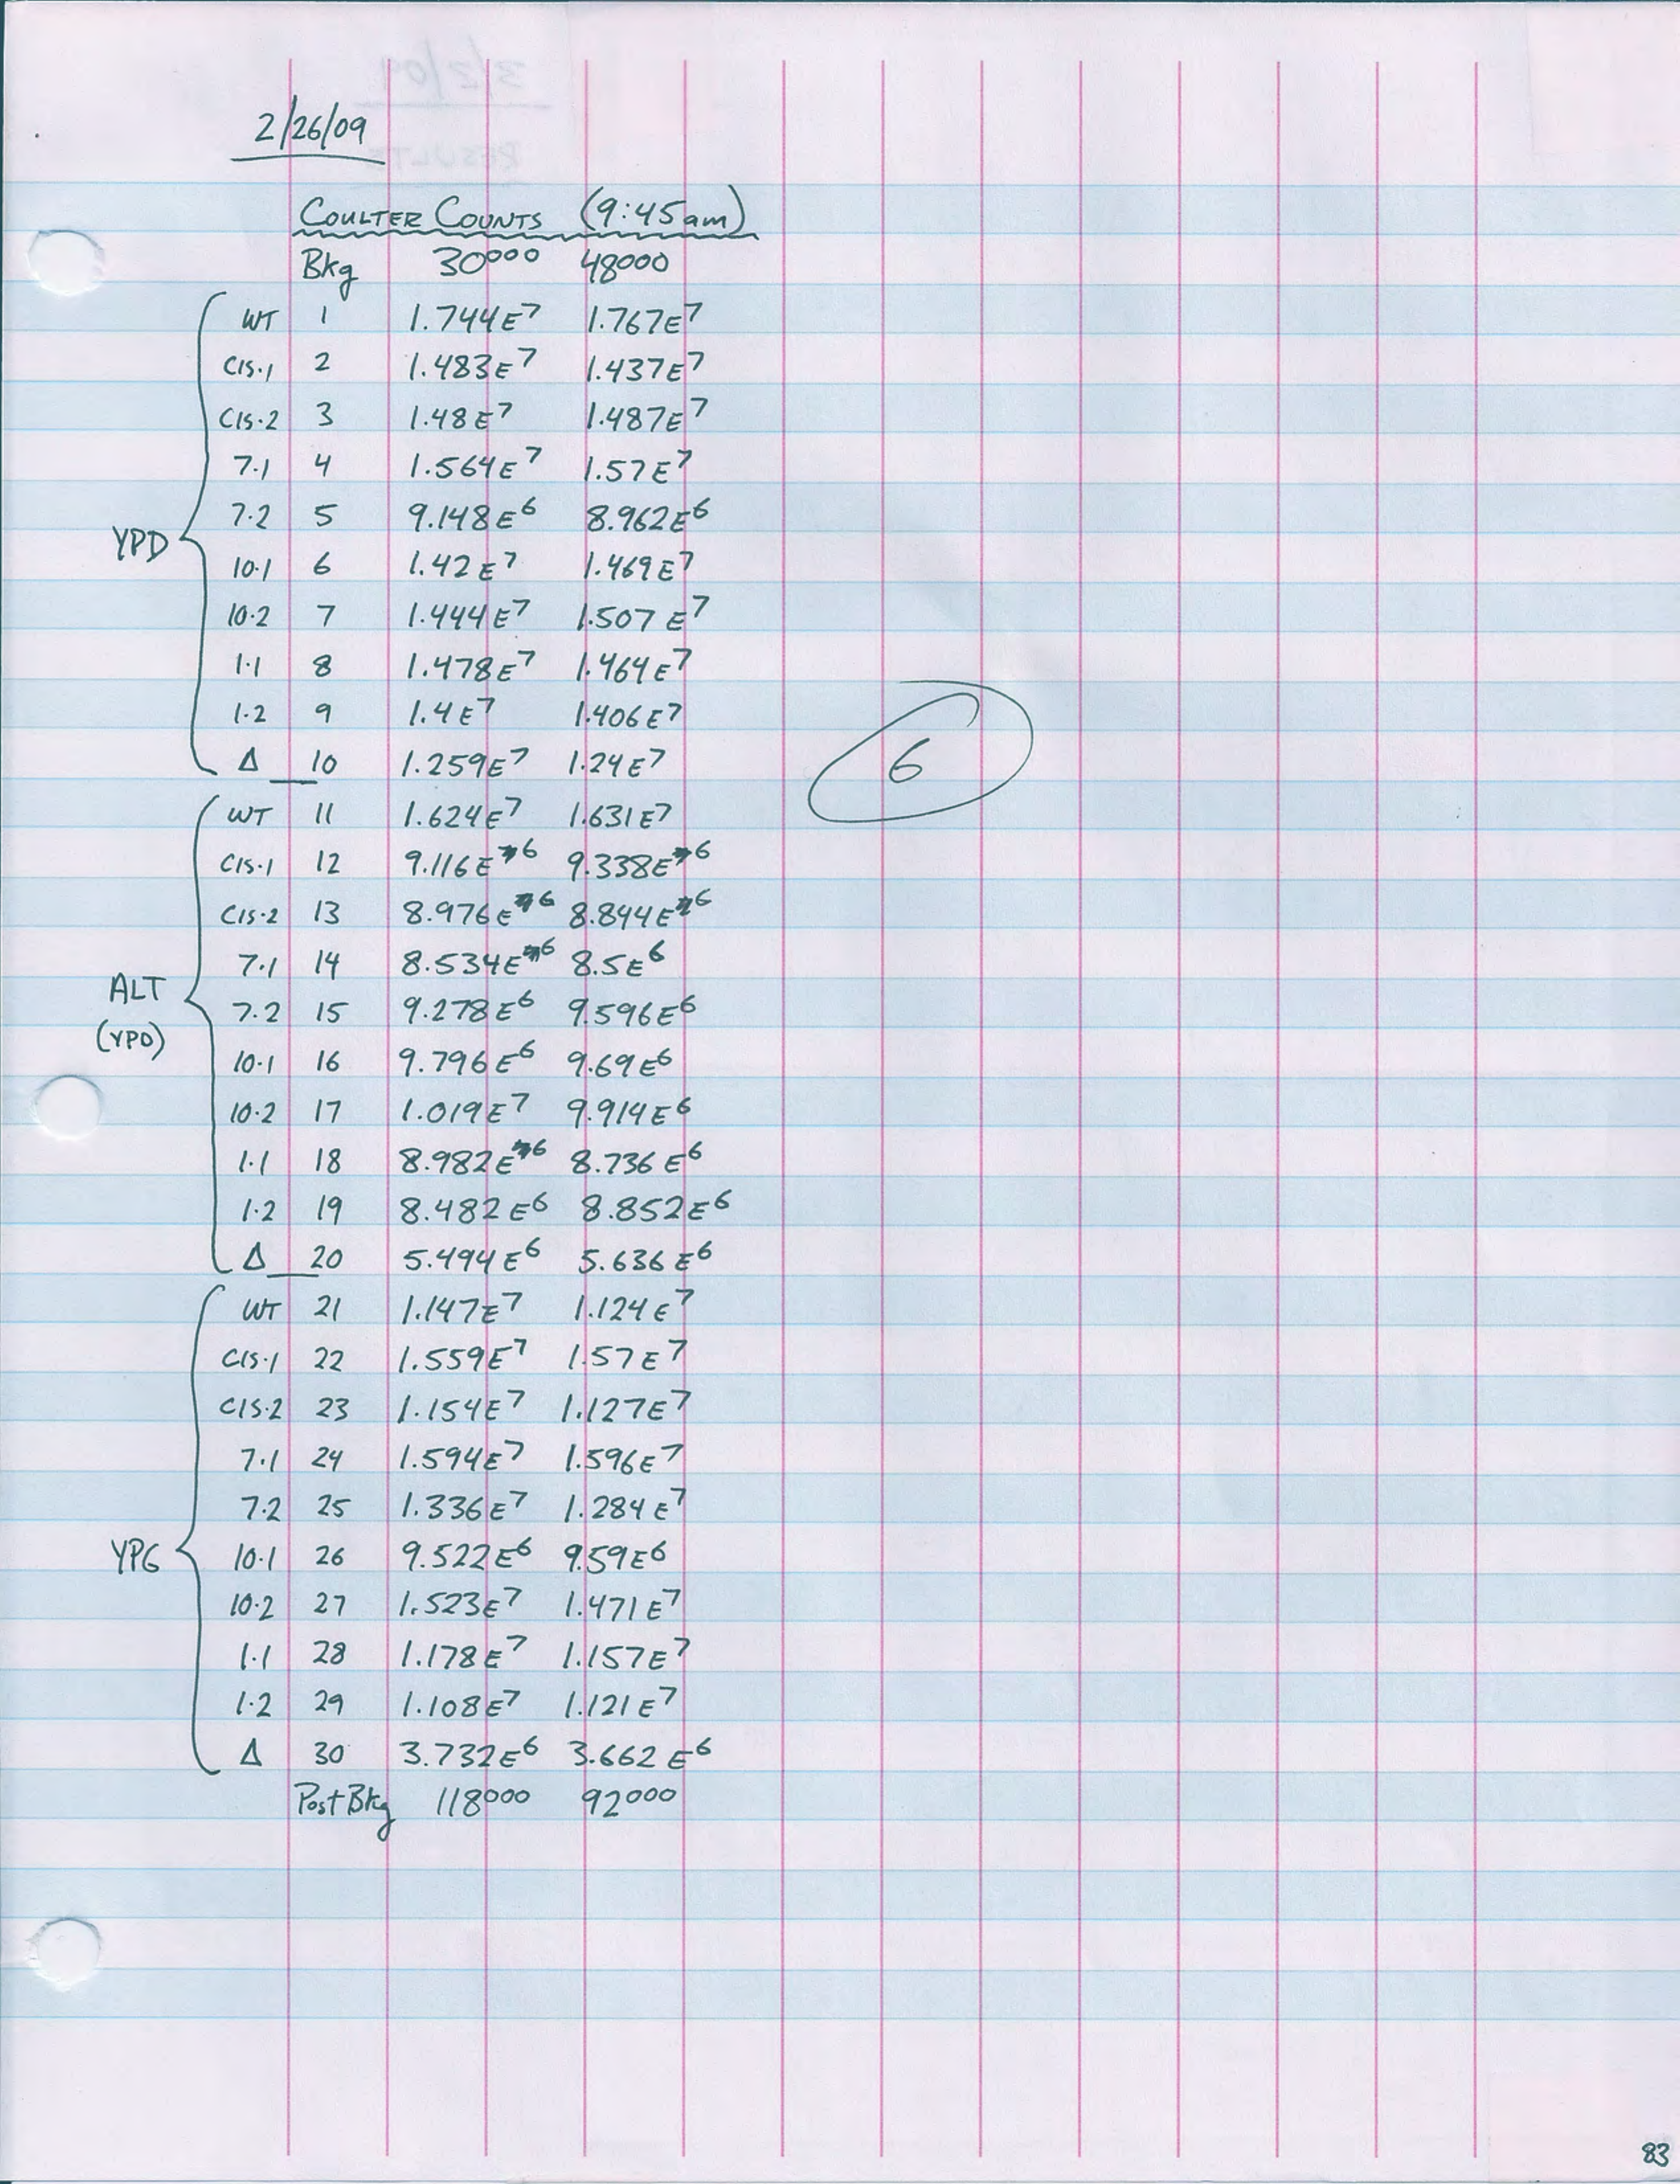 2/26/09
COULTER COUNTS (9:45am)
Bkg 30000 48000
YPD
WT 1 1.744E7 1.767E7
CIS.1 2 1.483E7 1.437E7
CIS.2 3 1.48E7 1.487E7
7.1 4 1.564E7 1.57E7
7.2 5 9.148E6 8.962E6
10.1 6 1.42E7 1.469E7
10.2 7 1.444E7 1.507E7
1.1 8 1.478E7 1.464E7
1.2 9 1.4E7 1.406E7
Δ 10 1.259E7 1.24E7
6
ALT
(YPD)
WT 11 1.624E7 1.631E7
CIS.1 12 9.116E6 9.338E6
CIS.2 13 8.976E6 8.844E6
7.1 14 8.534E6 8.5E6
7.2 15 9.278E6 9.596E6
10.1 16 9.796E6 9.69E6
10.2 17 1.019E7 9.914E6
1.1 18 8.982E6 8.736E6
1.2 19 8.482E6 8.852E6
Δ 20 5.494E6 5.636E6
YPG
WT 21 1.147E7 1.124E7
CIS.1 22 1.559E7 1.57E7
CIS.2 23 1.154E7 1.127E7
7.1 24 1.594E7 1.596E7
7.2 25 1.336E7 1.284E7
10.1 26 9.522E6 9.59E6
10.2 27 1.523E7 1.471E7
1.1 28 1.178E7 1.157E7
1.2 29 1.108E7 1.121E7
Δ 30 3.732E6 3.662E6
Post Bkg 118000 92000
83